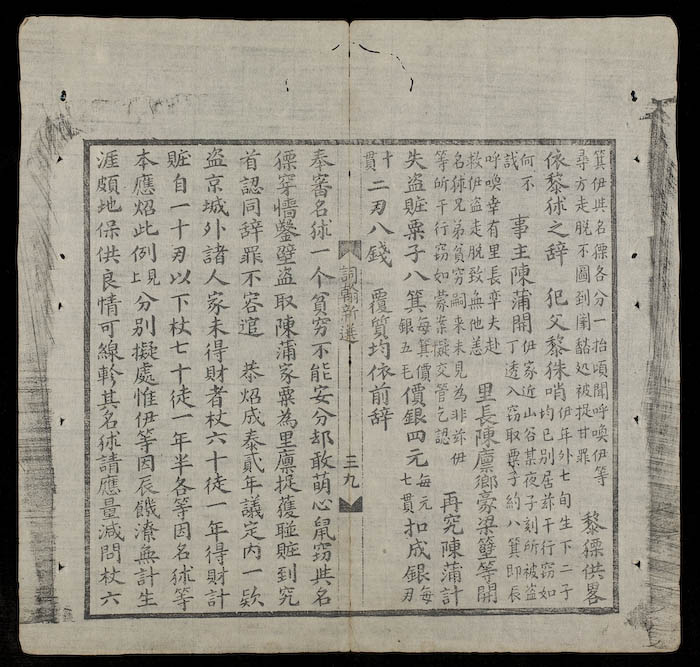 箕伊與名㯹各分一抬頃聞呼喚伊等
尋方走脫不圖到闌黠処被捉甘罪
黎㯹供畧
依黎秫之辞　犯父黎秩哨
伊年外七旬生下二子
均已别居茲干行窃如
何不
哉
事主陳蒲開
伊家近山谷某夜子刻所被盗
丁透入窃取粟子約八箕即辰
呼喚幸有里長率夫赴
救伊盗走脫致無他恙
里長陳廪鄉豪梁簅等開
名秫兄弟貧窮嗣来未見為非茲伊
等所干行窃如蒙案擬交管乞認
再究陳蒲計
失盗賍粟子八箕
每箕價
銀五毛
價銀四元
每元
七貫
扣成銀
每
刃
十
貫
二刃八錢　覆質均依前辞
詞翰新選　三九
奉審名秫一个貧窮不能安分却敢萌心鼠窃與名
㯹穿墻鑿壁盗取陳蒲家粟為里廪捉獲聀賍到究
首認同辞罪不容逭　恭炤成泰貳年議定内一欵
盗京城外諸人家未得財者杖六十徒一年得財計
賍自一十刃以下杖七十徒一年半各等因名秫等
本應炤此例見上分别擬處惟伊等因辰饑潦無計生
涯頗地保供良情可線軫其名秫請應量減問杖六